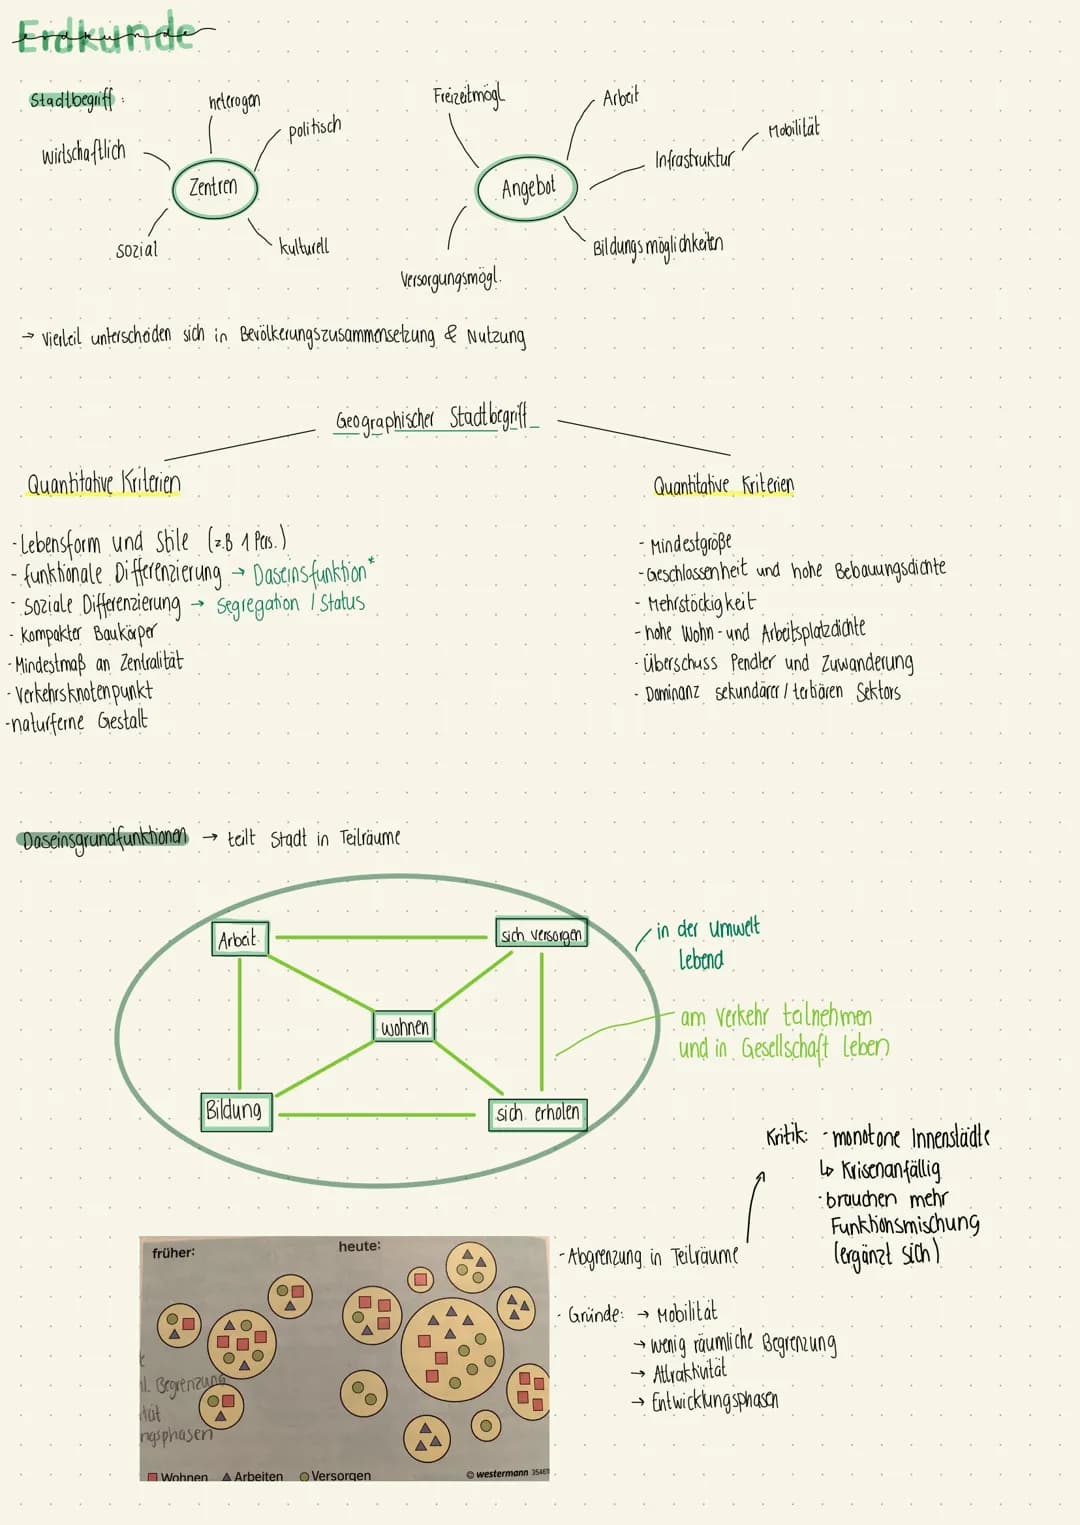 Erdkunde
erdkunde
Stadtbegriff:
heterogen
politisch
wirtschaftlich
Zentren
sozial
kulturell
Freizeitmögl
Arbeit
Mobilität
Infrastruktur
Angebot
Bildungsmöglichkeiten
Versorgungsmögl.
→ Vierteil unterscheiden sich in Bevölkerungszusammensetzung & Nutzung
Geographischer Stadtbegriff
Quantitative Kriterien
- Lebensform und Stile (z.B 1 Pers.)
- funktionale Differenzierung → Daseinsfunktion*
- Soziale Differenzierung → Segregation / Status
- Kompakter Baukörper
- Mindestmaß an Zentralität
- Verkehrsknotenpunkt
- naturferne Gestalt
Quantitative Kriterien
- Mindestgröße
- Geschlossenheit und hohe Bebauungsdichte
- Mehrstöckigkeit
- hohe Wohn- und Arbeitsplatzdichte
- Überschuss Pendler und Zuwanderung
- Dominanz sekundärer / tertiären Sektors
Daseinsgrundfunktionen → teilt Stadt in Teilräume
Arbeit
sich versorgen
wohnen
Bildung
sich erholen
in der Umwelt
lebend
am Verkehr teilnehmen
und in Gesellschaft leben
Kritik: - monotone Innenstädte
↳ Krisenanfällig
- brauchen mehr
Funktionsmischung
(ergänzt sich)
früher:
heute:
l. Begrenzung
tät
ngsphasen
Wohnen Arbeiten Versorgen
© westermann
- Abgrenzung in Teilräume
- Gründe: → Mobilität
→ wenig räumliche Begrenzung
→ Attraktivität
→ Entwicklungsphasen